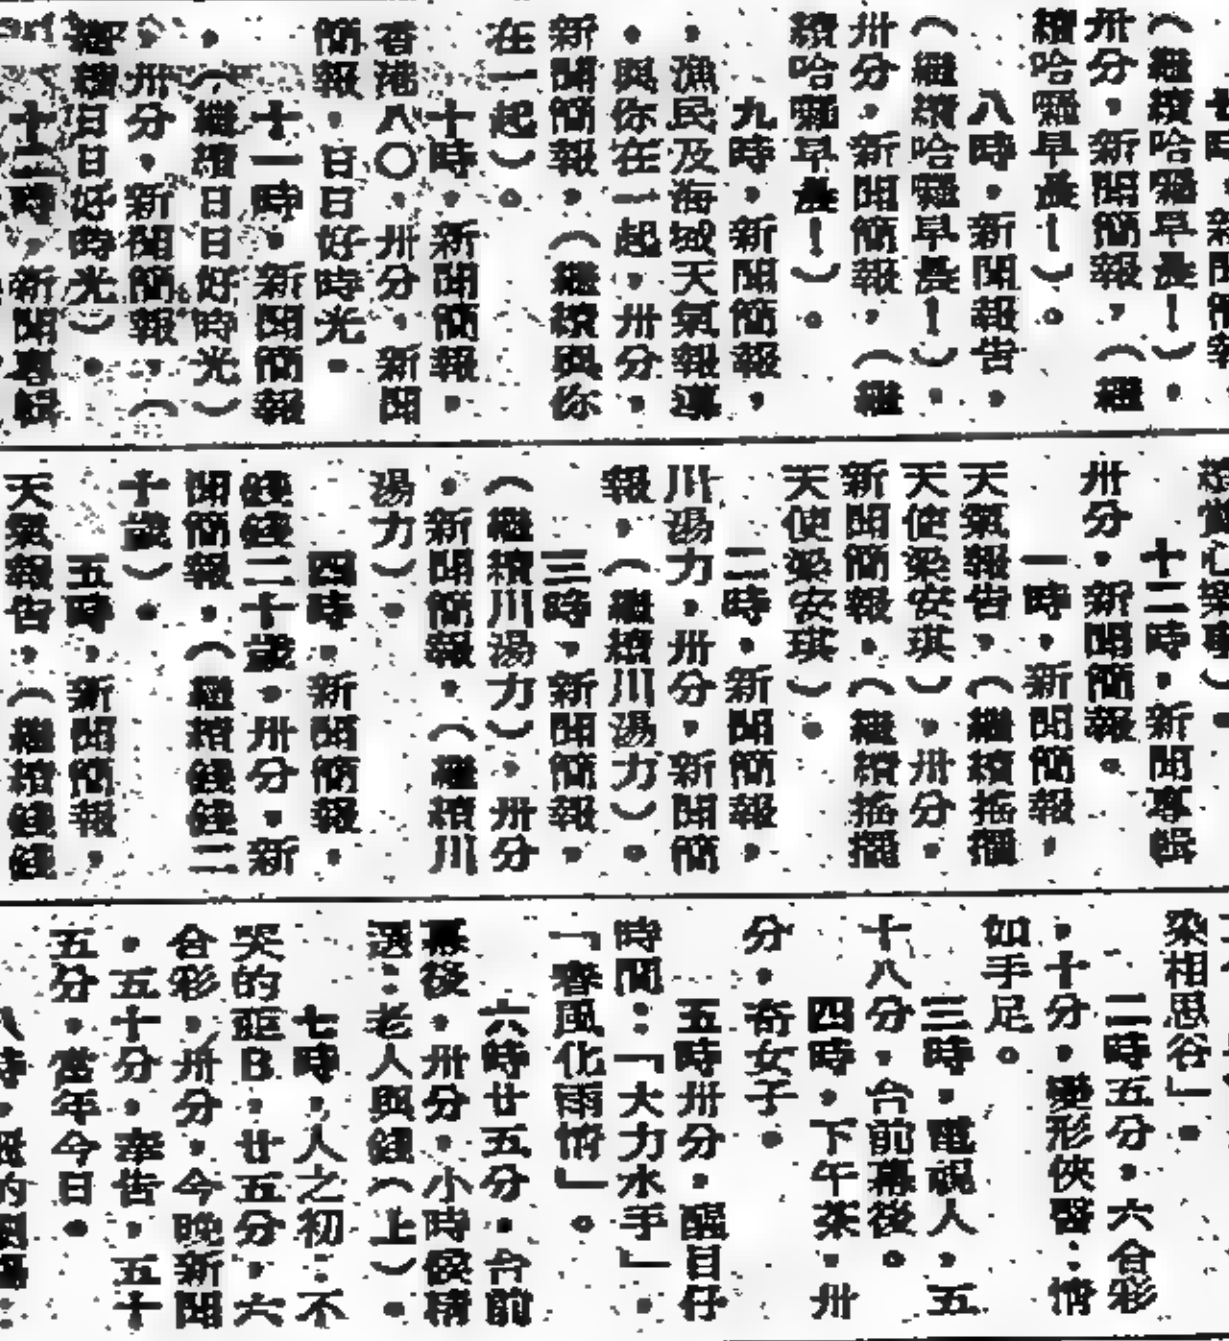 七時，新聞簡報
（繼續哈囉早晨！），
卅分，新聞簡報，（繼
續哈囉早晨！）。
八時，新聞報告，
（繼續哈囉早晨！），
卅分，新聞簡報，（繼
續哈囉早晨！）。
九時，新聞簡報，
，漁民及海域天氣報導
，與你在一起，卅分，
新聞簡報，（繼續與你
在一起）。
十時，新聞簡報，
香港八〇，卅分，新聞
簡報，日日好時光。
十一時，新聞簡報
，（繼續日日好時光）
，卅分，新聞簡報，（
繼續日日好時光）。
十二時，新聞專輯
趣賞心樂事）。
十二時，新聞專輯
卅分，新聞簡報。
一時，新聞簡報，
天氣報告，（繼續搖擺
天使梁安琪），卅分，
新聞簡報，（繼續搖擺
天使梁安琪）。
二時，新聞簡報，
川湯力，卅分，新聞簡
報，（繼續川湯力）。
三時，新聞簡報，
（繼續川湯力），卅分
，新聞簡報，（繼續川
湯力）。
四時，新聞簡報，
錢錢二十歲，卅分，新
聞簡報，（繼續錢錢二
十歲）。
五時，新聞簡報，
天氣報告，（繼續錢錢
染相思谷」。
二時五分，六合彩
，十分，變形俠醫：情
如手足。
三時，電視人，五
十八分，台前幕後。
四時，下午茶，卅
分，奇女子。
五時卅分，醒目仔
時間：「大力水手」，
「春風化雨情」。
六時廿五分，台前
幕後，卅分，小時候精
選：老人與錢（上）。
七時，人之初：不
哭的距B，廿五分，六
合彩，卅分，今晚新聞
，五十分，奉告，五十
五分，當年今日。